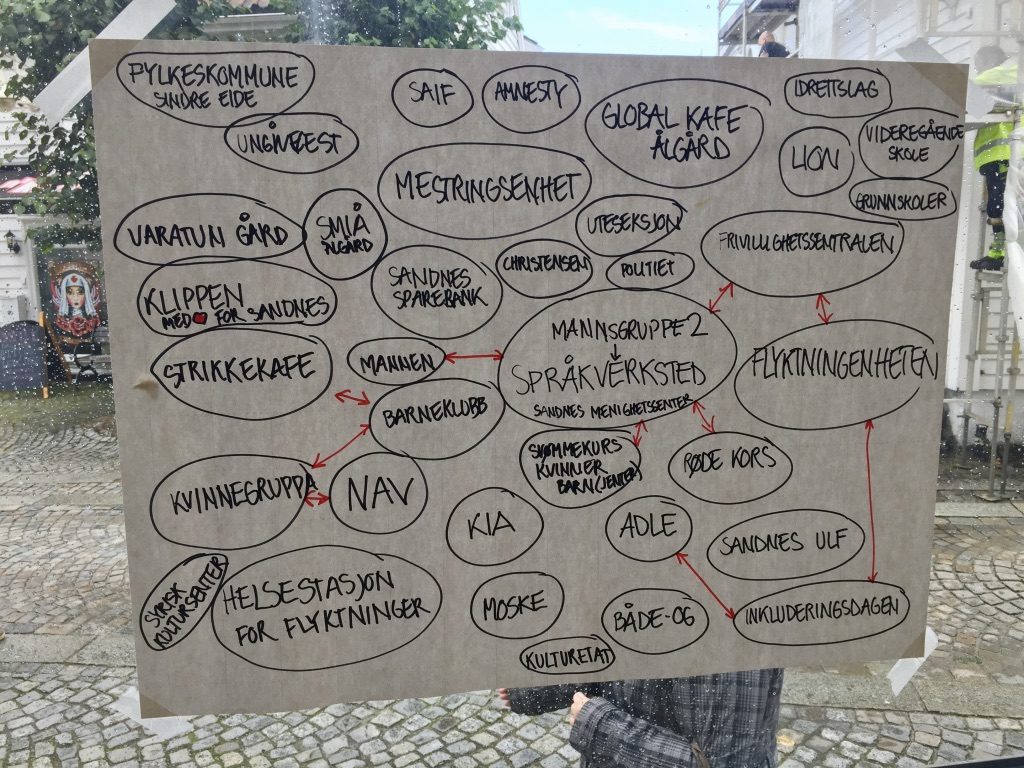 FYLKESKOMMUNE
SINDRE EIDE
SAIF
AMNESTY
GLOBAL KAFE
ÅLGÅRD
IDRETTSLAG
VIDEREGÅENDE
SKOLE
LION
GRUNNSKOLER
MESTRINGSENHET
VARATUN GÅRD
SMIÅ
ÅLGÅRD
UTESEKSJON
FRIVILLIGHETSSENTRALEN
SANDNES
SPAREBANK
CHRISTENSEN
POLITIET
KLIPPEN
MED ❤ FOR SANDNES
MANNSGRUPPE 2
↓
SPRÅKVERKSTED
SANDNES MENIGHETSSENTER
STRIKKEKAFE
MANNEN
FLYKTNINGENHETEN
BARNEKLUBB
SVØMMEKURS
KVINNER
BARN (JENTER)
RØDE KORS
KVINNEGRUPPA
NAV
KIA
ADLE
SANDNES ULF
SYRISK
KULTURSENTER
HELSESTASJON
FOR FLYKTNINGER
MOSKE
BÅDE-OG
INKLUDERINGSDAGEN
KULTURETAT